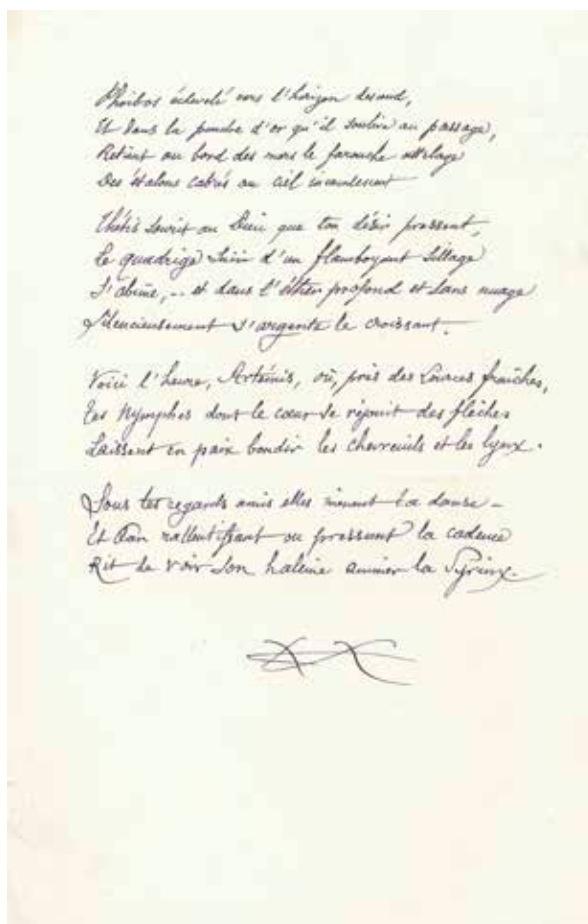 Phoibos échevelé vers l'horizon descend,
Et dans la poudre d'or qu'il soulève au passage,
Retient au bord des mers le farouche attelage
Des étalons cabrés au ciel incandescent
Thétis sourit au Dieu que ton désir pressent,
Le quadrige suivi d'un flamboyant sillage
S'abîme, _ et dans l'éther profond et sans nuage
Silencieusement s'argente le croissant.
Voici l'heure, Artémis, où, près des sources fraîches,
Tes Nymphes dont le cœur se réjouit des flèches
Laissent en paix bondir les chevreuils et les lynx.
Sous tes regards amis elles mènent la danse _
Et Pan rallentissant ou pressant la cadence
Rit de voir son haleine animer la Syrinx.